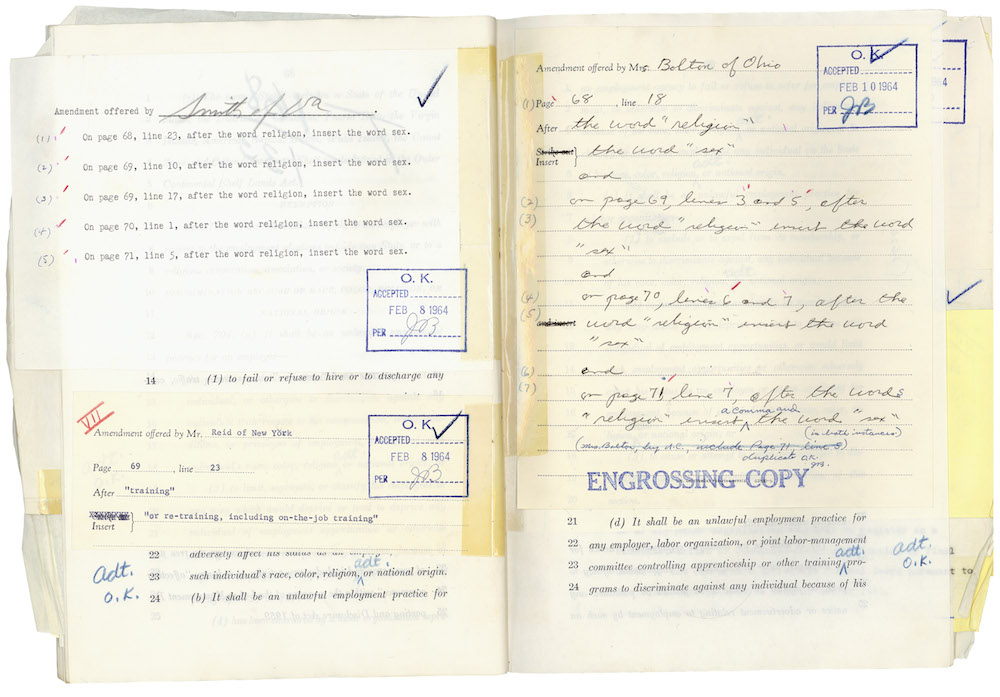 Amendment offered by Smith of Va.
(1) On page 68, line 23, after the word religion, insert the word sex.
(2) On page 69, line 10, after the word religion, insert the word sex.
(3) On page 69, line 17, after the word religion, insert the word sex.
(4) On page 70, line 1, after the word religion, insert the word sex.
(5) On page 71, line 5, after the word religion, insert the word sex.
O. K.
ACCEPTED
FEB 8 1964
PER JB
14 (1) to fail or refuse to hire or to discharge any
VII
Amendment offered by Mr. Reid of New York
Page 69, line 23
After "training"
Insert "or re-training, including on-the-job training"
O. K.
ACCEPTED
FEB 8 1964
PER JB
22 adversely affect his status as an
adt.
23 such individual's race, color, religion, or national origin.
24 (b) It shall be an unlawful employment practice for
adt.
O.K.
Amendment offered by Mrs. Bolton of Ohio
O. K.
ACCEPTED
FEB 10 1964
PER JB
(1) Page 68, line 18
After the word "religion"
Strike out
Insert } the word "sex"
and
(2) on page 69, lines 3 and 5, after
(3) the word "religion" insert the word
"sex"
and
(4) on page 70, lines 6 and 7, after the
(5) and insert word "religion" insert the word
"sex"
(6) and
(7) on page 71, line 7, after the words
a comma and
"religion" insert the word "sex"
(in both instances)
(Mrs. Bolton, by U.C., include Page 71 line 5)
duplicate O.K.
JB.
ENGROSSING COPY
21 (d) It shall be an unlawful employment practice for
22 any employer, labor organization, or joint labor-management
adt.
23 committee controlling apprenticeship or other training pro-
24 grams to discriminate against any individual because of his
adt.
O.K.